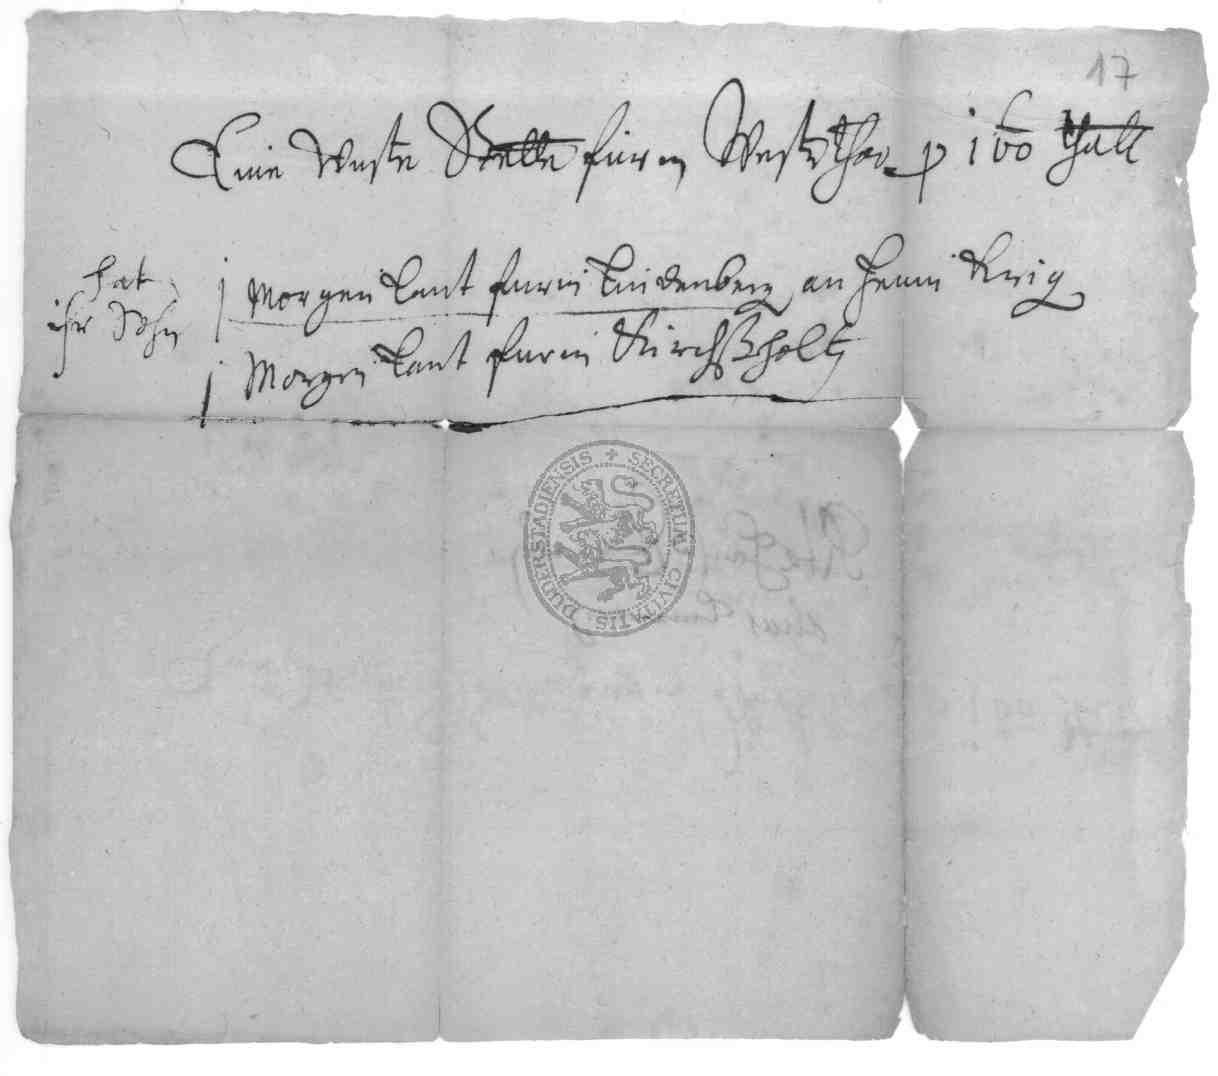 17
Eine wuste Stelle furm Westerthor p 160 thall
hat
ihr Sohn
j Morgen Lant furm Lindenberg an Henni Krig
j Morgen Lant furm Kirchßholtz
SECRETUM CIVITATIS DUDERSTADIENSIS